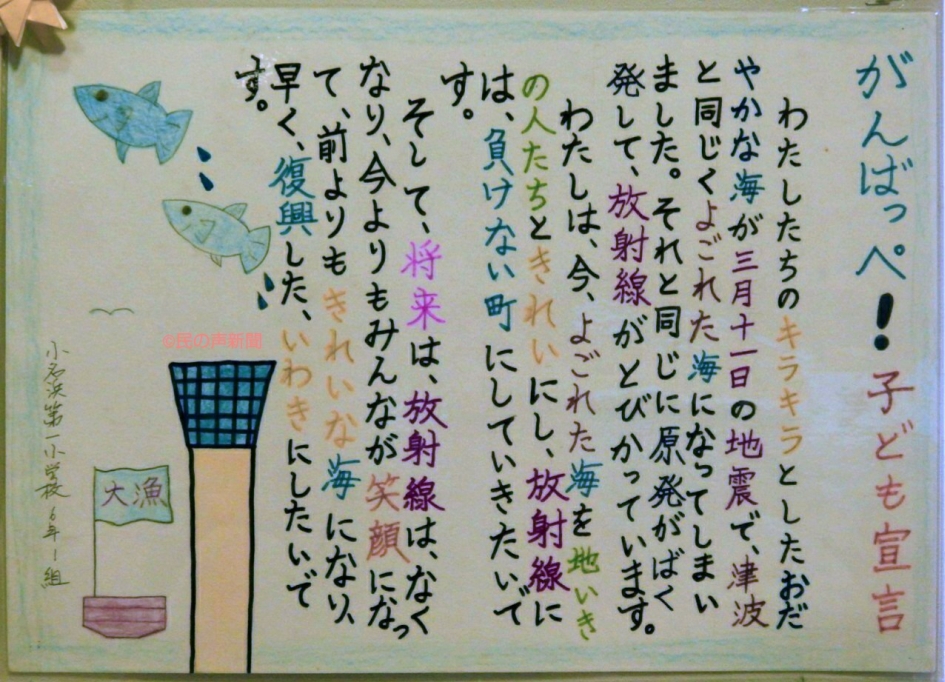 がんばっぺ！子ども宣言
わたしたちのキラキラとしたおだ
やかな海が三月十一日の地震で、津波
と同じくよごれた海になってしまい
ました。それと同じに原発がばく
発して、放射線がとびかっています。
わたしは、今、よごれた海を地いき
の人たちときれいにし、放射線に
は、負けない町にしていきたいで
す。
そして、将来は、放射線は、なく
なり、今よりもみんなが笑顔になっ
て、前よりもきれいな海になり、
早く、復興した、いわきにしたいで
す。
©民の声新聞
大漁
小名浜第一小学校6年1組